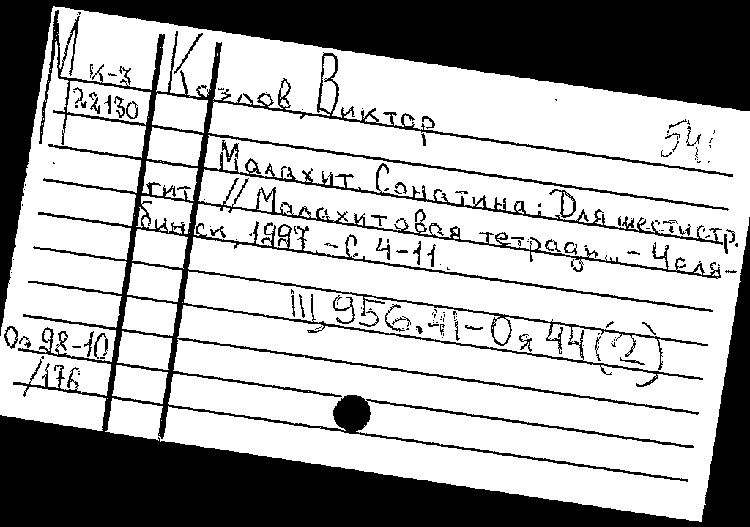 М к-з
22130
Козлов, Виктор
54!
Малахит. Сонатина: Для шестистр.
гит. // Малахитовая тетрадь... - Челя-
бинск, 1997. - С. 4-11.
Ш, 956.41-Оя 44 (2)
Оя 98-10
/176